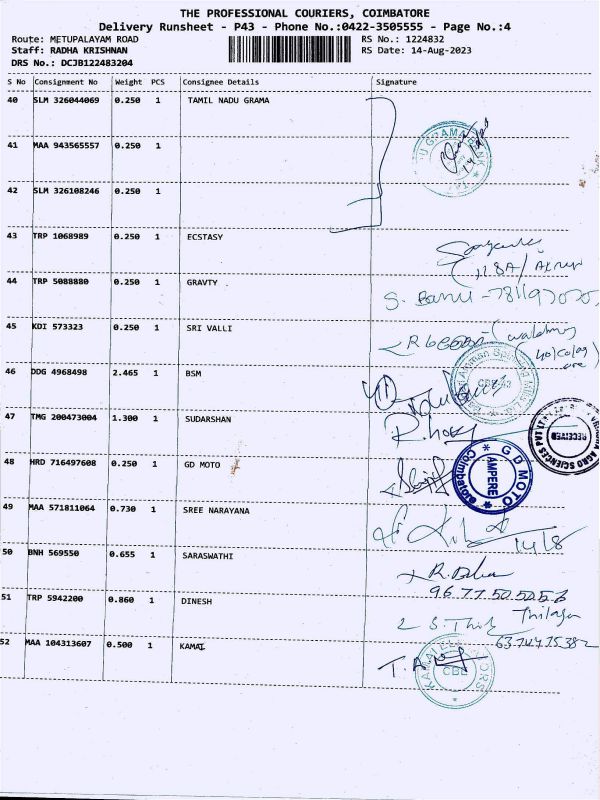 THE PROFESSIONAL COURIERS, COIMBATORE
Delivery Runsheet - P43 - Phone No.:0422-3505555 - Page No.:4
Route: METUPALAYAM ROAD RS No.: 1224832
Staff: RADHA KRISHNAN RS Date: 14-Aug-2023
DRS No.: DCJB122483204
S No Consignment No Weight PCS Consignee Details Signature
40 SLM 326044069 0.250 1 TAMIL NADU GRAMA
41 MAA 943565557 0.250 1
U GRAMA BANK
42 SLM 326108246 0.250 1
43 TRP 1068989 0.250 1 ECSTASY
44 TRP 5088880 0.250 1 GRAVTY
S. Banu
45 KDI 573323 0.250 1 SRI VALLI
46 DDG 4968498 2.465 1 BSM
47 TMG 200473004 1.300 1 SUDARSHAN
RECEIVED
AGRO SCIENCES PVT
48 HRD 716497608 0.250 1 GD MOTO
GD MOTO
AMPERE
Coimbatore
49 MAA 571811064 0.730 1 SREE NARAYANA
14/8
50 BNH 569550 0.655 1 SARASWATHI
51 TRP 5942200 0.860 1 DINESH
52 MAA 104313607 0.500 1 KAMAL
CBE